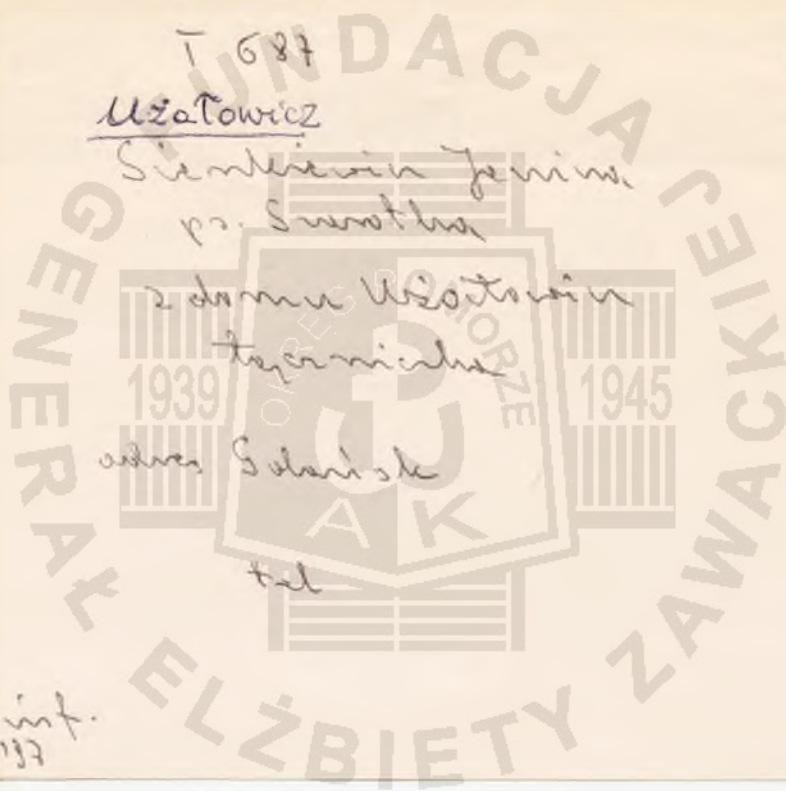 T 687
Użałowicz
Sienkiewicz Janina
ps. Sarotka
z domu Użałtowicz
łączniczka
adres Gdańsk
tel
inf.
FUNDACJA GENERAŁ ELŻBIETY ZAWACKIEJ
OKRĘG POMORZE
1939
1945
AK